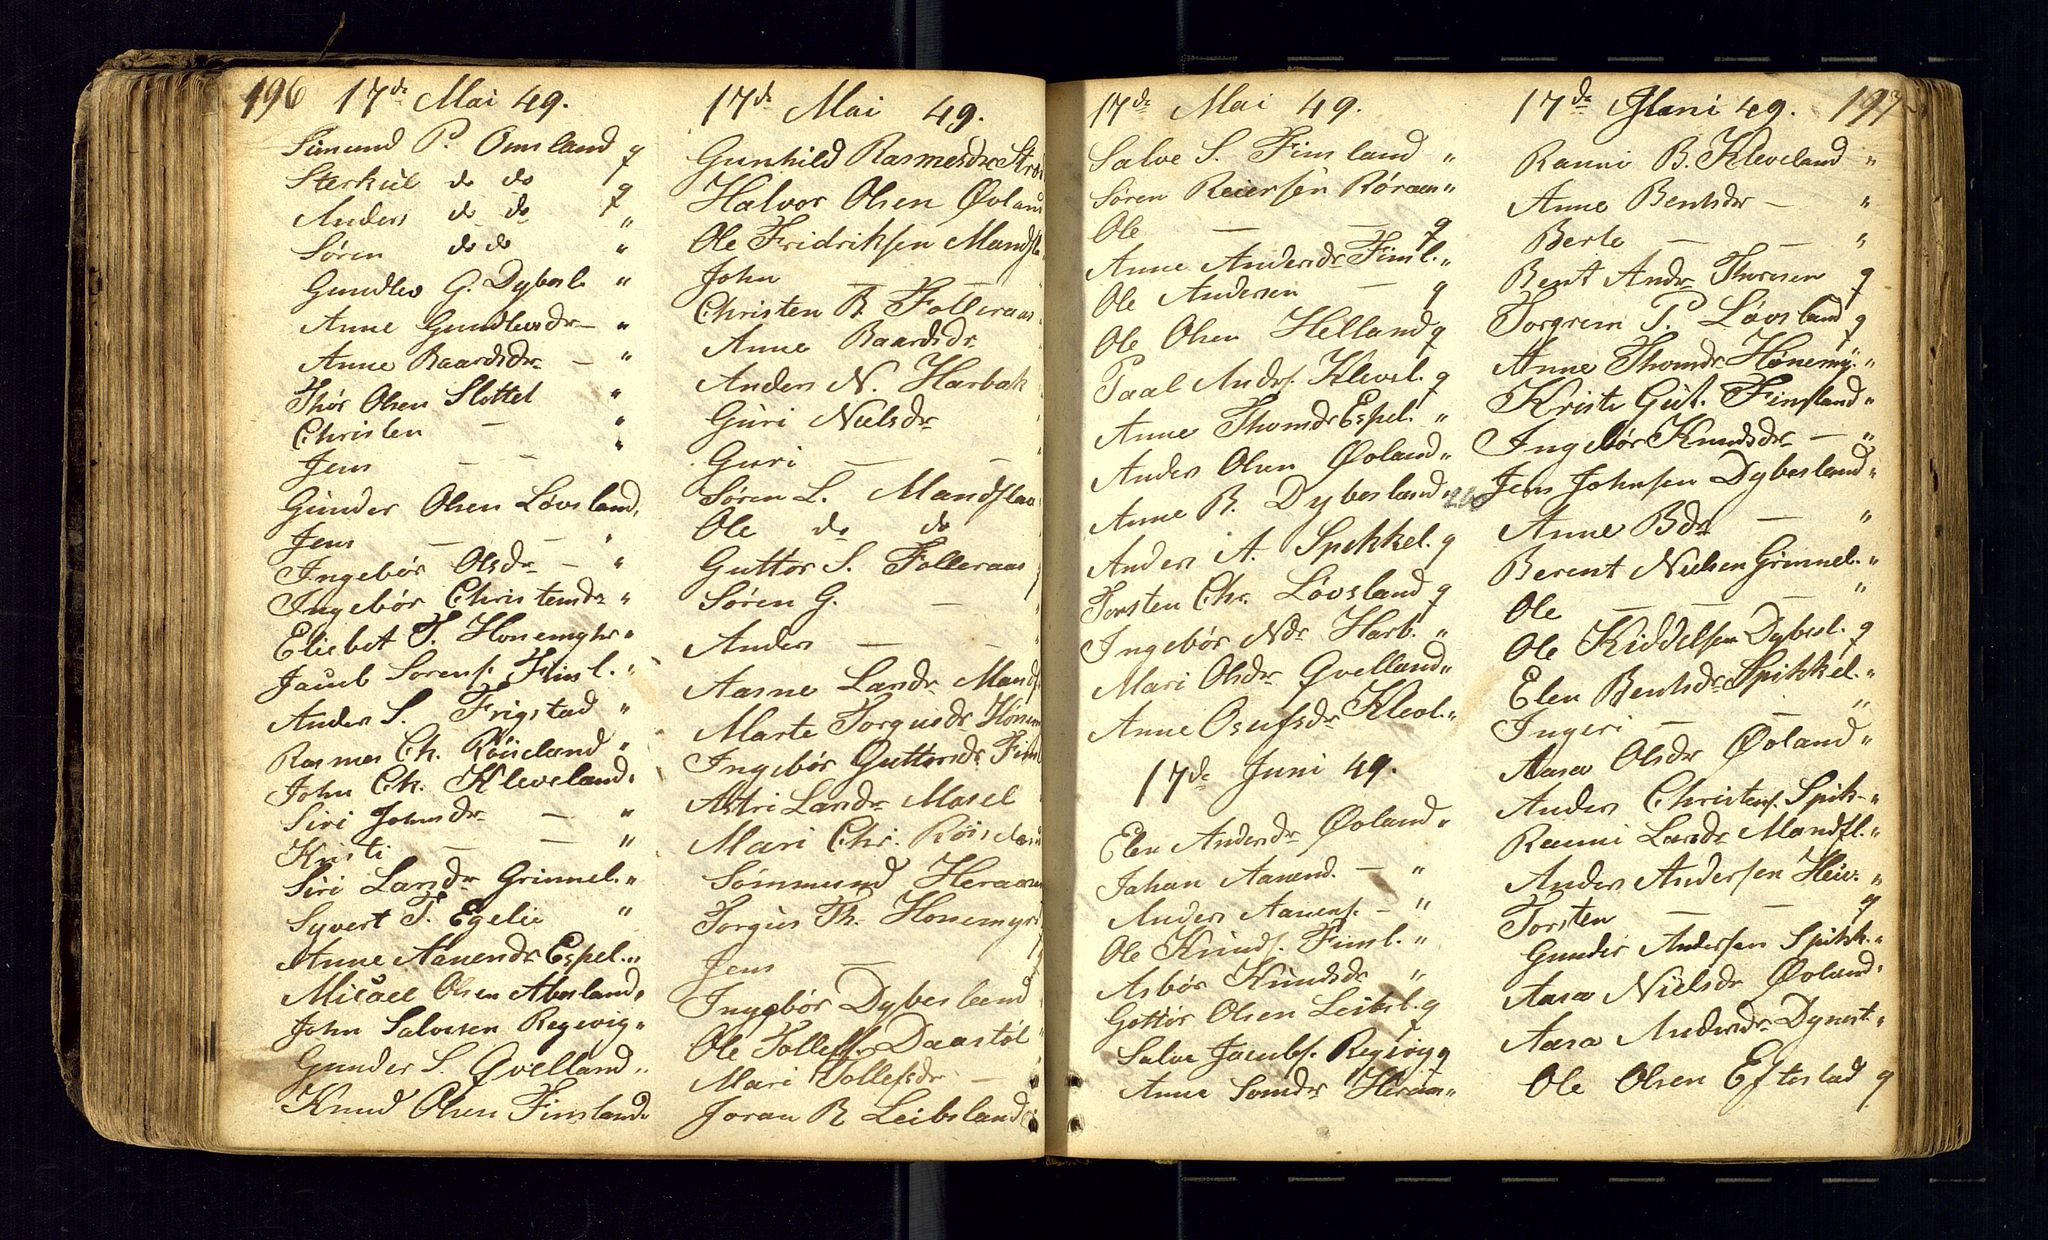 196 17de Mai 49.
Simund P. Omland q
Sterkul do do q
Anders do do "
Søren do do "
Gundlev G. Dybesl. "
Anne Gundlevsdr — "
Anne Baardsdr — "
Thor Olsen Slottet "
Christen — "
Jens — — "
Gunder Olsen Løvsland "
Jens — — "
Ingebør Olsdr — "
Ingebør Christensdr "
Eliebet T. Honemyhr "
Jacob Sorens. Finsl. "
Anders S. Frigstad "
Rasmes Ch. Röiseland "
John Ch. Kleveland "
Siri Johnsdr — "
Kristi — — "
Siri Larsdr Grinnel. "
Syvert T. Egelie "
Anne Aanensdr Espel. "
Micael Olsen Abesland "
John Salvesen Regevig "
Gunder S. Qvelland "
Knud Olsen Finsland "
17de Mai 49.
Gunhild Rasmesdr
Halvor Olsen Øvland
Ole Fridriksen
John —
Christen B. Folleraas
Anne Baardsdr
Anders N. Harbak
Guri Nielsdr
Guri — —
Søren L. Mandflaa
Ole do do
Guttor S. Folleraas
Søren G. —
Anders — —
Aasne Larsdr
Marte Torgusdr
Ingebör Guttorsdr
Astri Larsdr Mosel
Mari Chr. Röiseland
Sömmund Heraas
Torgius Th. Honemyr
Jens —
Ingebör Dybesland
Ole Tollefs. Daastöl
Mari Tollefsdr —
Joran R Leibsland
17de Mai 49.
Salve S. Finsland "
Søren Reiersen Röraas "
Ole — — q
Anne Andersdr Finsl. "
Ole Andersen — q
Ole Olsen Helland q
Paal Anders. Klevel. q
Anne Thomdr Espel. "
Anders Olsen Øvland "
Anne B. Dybesland "
Anders A. Spikkel. q
Torsten Chr. Løvsland q
Ingebør Ndr Harb. "
Mari Olsdr Qvelland "
Anne Osufsdr Klevl. "
17de Juni 49.
Elen Andersdr Øvland "
Johan Aanend. — "
Anders Aanens. — "
Ole Knuds. Finsl. "
Asbør Knudsdr "
Gottor Olsen Leibsl. q
Salve Jacobs. Regevig q
Anne Somdr Heraas "
17de Juni 49. 197
Ranni B. Kleveland "
Anne Bentsdr — "
Berte — — "
Bent Andr Thoresen q
Torgrem P. Løvsland q
Anne Thomdr Hønemy. "
Kristi Gut. Finsland "
Ingebør Knudsdr — "
Jens Johnsen Dybesland "
Anne Bdr — "
Berent Nielsen Grinnel. "
Ole — — "
Ole Kiddelsen Dybesl. q
Elen Bentsdr Spikkel. "
Ingeri — — "
Aasa Olsdr Øvland "
Anders Christens. Spik- "
Ranni Larsdr Mandfl. "
Anders Andersen Heiv. "
Torsten — — q
Gunder Andersen Spikk. "
Aasa Nielsdr Øvland "
Aasa Andersdr Dynest. "
Ole Olsen Eftestad q